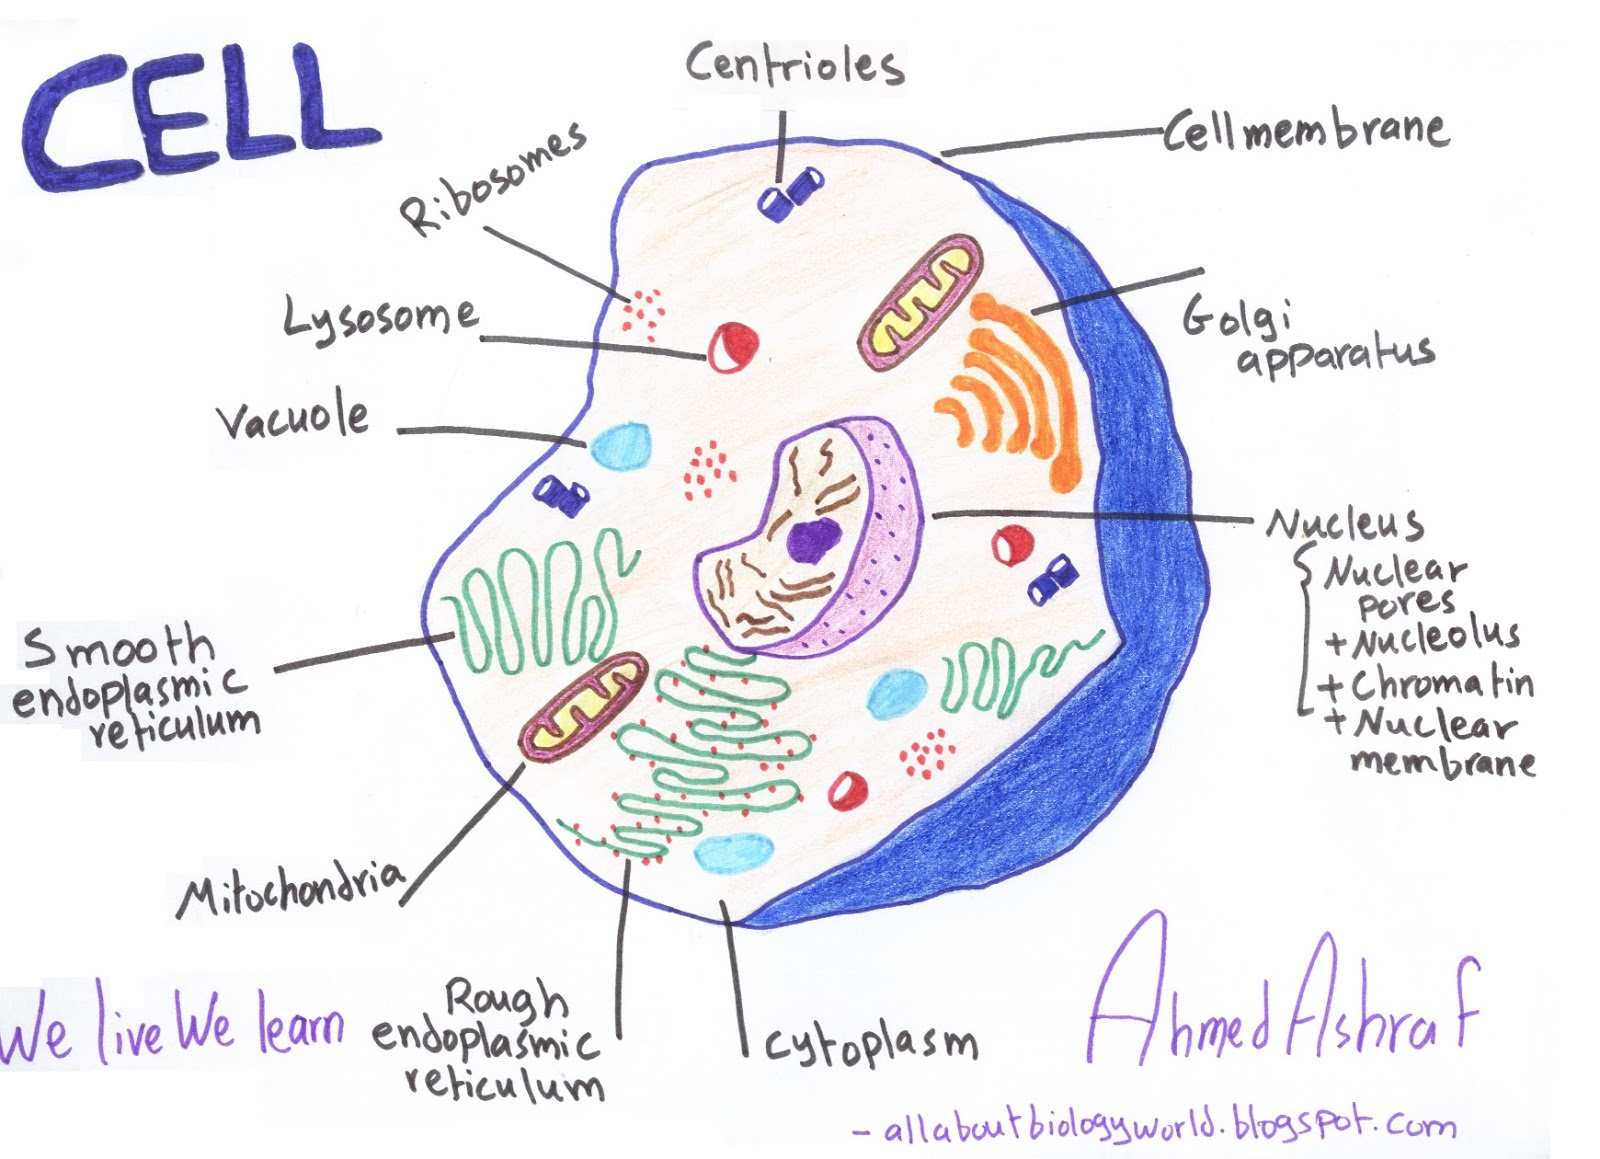 CELL
Centrioles
Cell membrane
Ribosomes
Lysosome
Golgi
apparatus
Vacuole
Nucleus
Nuclear
pores
+ Nucleolus
+ Chromatin
+ Nuclear
membrane
Smooth
endoplasmic
reticulum
Mitochondria
Rough
endoplasmic
reticulum
cytoplasm
We live We learn
Ahmed Ashraf
- allaboutbiologyworld.blogspot.com